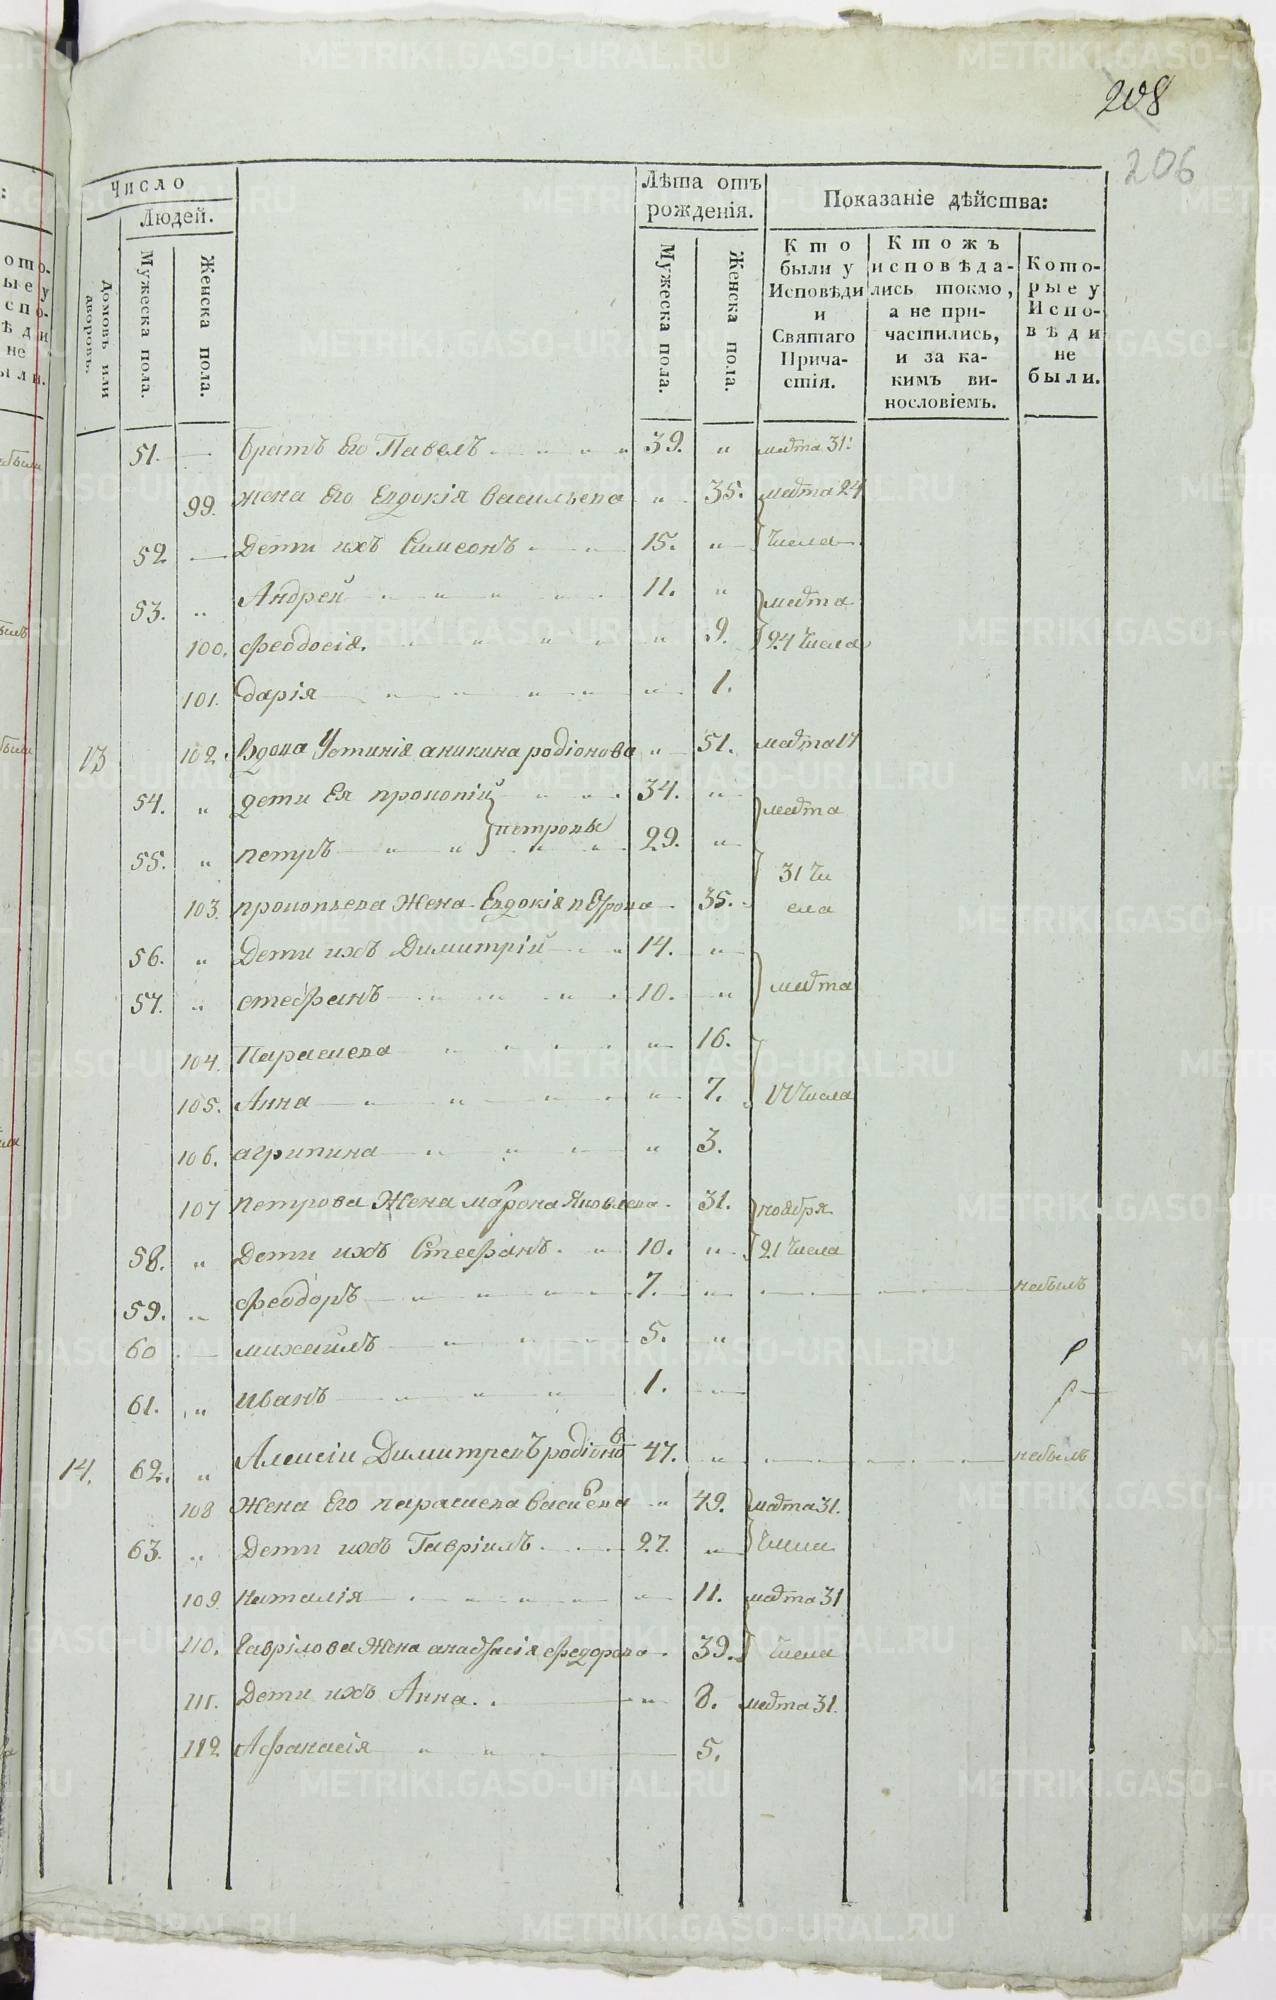 208
206
Число
Людей.
Домовъ или дворовъ.
Мужеска пола.
Женска пола.
Лѣта отъ рожденія.
Мужеска пола.
Женска пола.
Показаніе дѣйства:
Кто были у Исповѣди и Святаго Причастія.
Ктожъ исповѣдались токмо, а не причастились, и за какимъ винословіемъ.
Которые у Исповѣди не были.
51. — братъ Его Павелъ 39. " марта 31:
99. жена Его Евдокія васильева " 35. марта 24
52 — Дети ихъ Симеонъ 15. " числа
53. " Андрей 11. " марта
100. феодосія. " 9. 24 числа
101. дарія " 1.
13 102. Вдова Устинія аникина родіонова " 51. марта 17
54. " дети Ея прокопій 34. " марта
петровы
55. " петръ 29. " 31 чи
103. прокопьева Жена Евдокія пЕтрова 35. сла
56. " Дети ихъ Димитрій 14. "
57. " стефанъ 10. " марта
104. Параскева " 16.
105. Анна " 7. 17 числа
106. агрипина " 3.
107 петрова Жена матрона Яковлева 31. ноября
58. " Дети ихъ Стефанъ 10. " 21 числа
59. " феодоръ 7. " небылъ
60 — михаилъ 5. "
61. " иванъ 1.
14. 62. " Алексіи Димитреевъ родіоновъ 47. " небылъ
108 Жена Его параскева васильева " 49. марта 31.
63. " Дети ихъ Гавріилъ 27. " числа
109. наталія " 11. марта 31
110. Гаврілова Жена анастасія федорова 39. числа
111. Дети ихъ Анна " 8. марта 31.
112 Афанасія 5.
METRIKI.GASO-URAL.RU